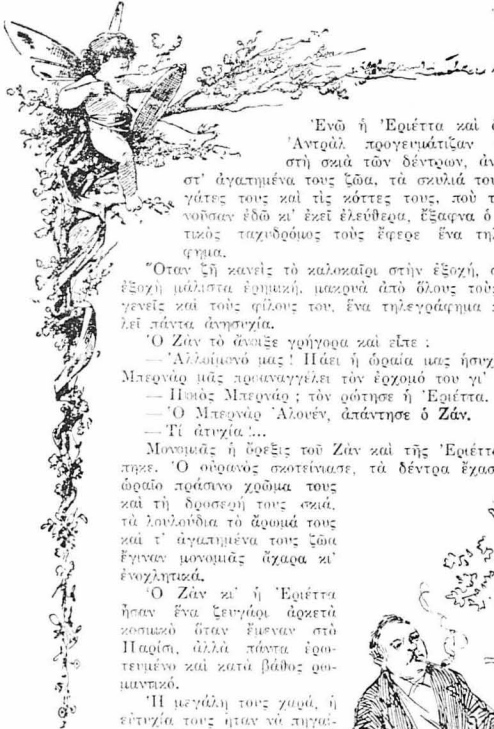 Ἐνῶ ἡ Ἑριέττα καὶ ὁ
Ἀντρὰλ προγευμάτιζαν
στὴ σκιὰ τῶν δέντρων, ἀν
στ' ἀγαπημένα τους ζῶα, τὰ σκυλιά του
γάτες τους καὶ τὶς κόττες τους, ποὺ τ
νοῦσαν ἐδῶ κι' ἐκεῖ ἐλεύθερα, ἔξαφνα ὁ
τικὸς ταχυδρόμος τοὺς ἔφερε ἕνα τηλ
φημα.
Ὅταν ζῇ κανεὶς τὸ καλοκαῖρι στὴν ἐξοχή, σ
ἐξοχὴ μάλιστα ἐρημική, μακρυὰ ἀπὸ ὅλους τοὺς
γενεῖς καὶ τοὺς φίλους του, ἕνα τηλεγράφημα
λεῖ πάντα ἀνησυχία.
Ὁ Ζὰν τὸ ἄνοιξε γρήγορα καὶ εἶπε :
— Ἀλλοίμονό μας! Πάει ἡ ὡραία μας ἡσυχ
Μπερνὰρ μᾶς προαναγγέλει τὸν ἐρχομό του γι'
— Ποιὸς Μπερνάρ ; τὸν ρώτησε ἡ Ἑριέττα.
— Ὁ Μπερνὰρ Ἀλουέν, ἀπάντησε ὁ Ζάν.
— Τί ἀτυχία !...
Μονομιᾶς ἡ ὄρεξις τοῦ Ζὰν καὶ τῆς Ἑριέττ
πηκε. Ὁ οὐρανὸς σκοτείνιασε, τὰ δέντρα ἔχασ
ὡραῖο πράσινο χρῶμα τους
καὶ τὴ δροσερή τους σκιά,
τὰ λουλούδια τὸ ἄρωμά τους
καὶ τ' ἀγαπημένα τους ζῶα
ἔγιναν μονομιᾶς ἄχαρα κι'
ἐνοχλητικά.
Ὁ Ζὰν κι' ἡ Ἑριέττα
ἦσαν ἕνα ζευγάρι ἀρκετὰ
κοσμικὸ ὅταν ἔμεναν στὸ
Παρίσι, ἀλλὰ πάντα ἐρω-
τευμένο καὶ κατὰ βάθος ρω-
μαντικό.
Ἡ μεγάλη τους χαρά, ἡ
εὐτυχία τους ἦταν νὰ πηγαί-